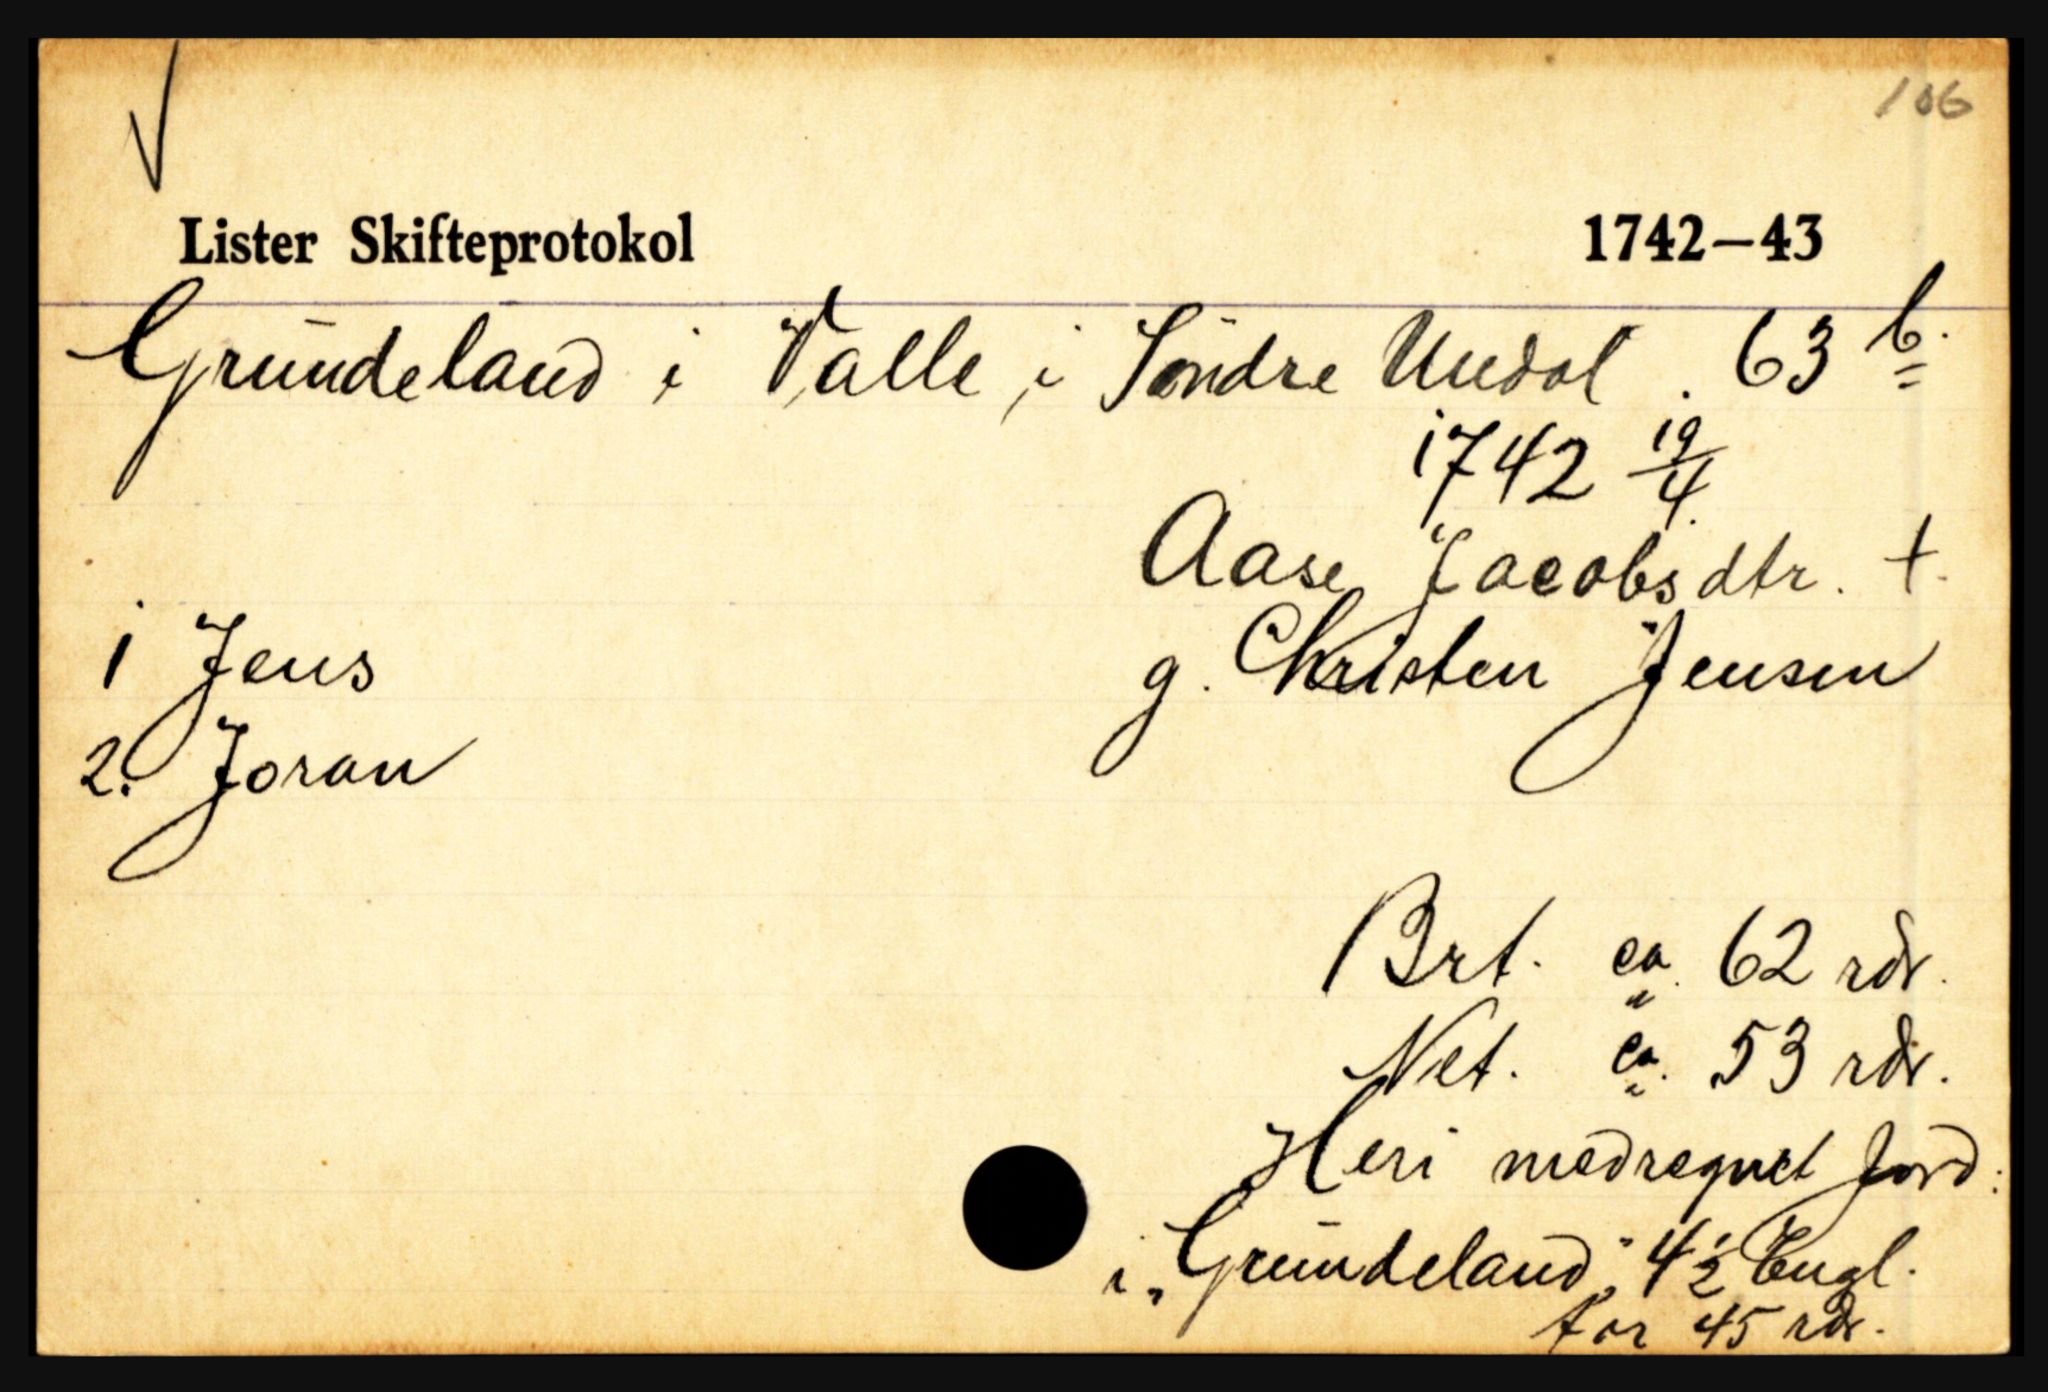 106
Lister Skifteprotokol 1742–43
Grundeland i Valle, i Söndre Undal. 63 b.
1742 19/4
Aase Jacobsdtr. †.
1 Jens
g. Christen Jensen
2. Joran
Brt. ca. 62 rdr.
Net. ca. 53 rdr.
Heri medregnet Jord:
i „Grundeland", 4½ Engl.
for 45 rdr.